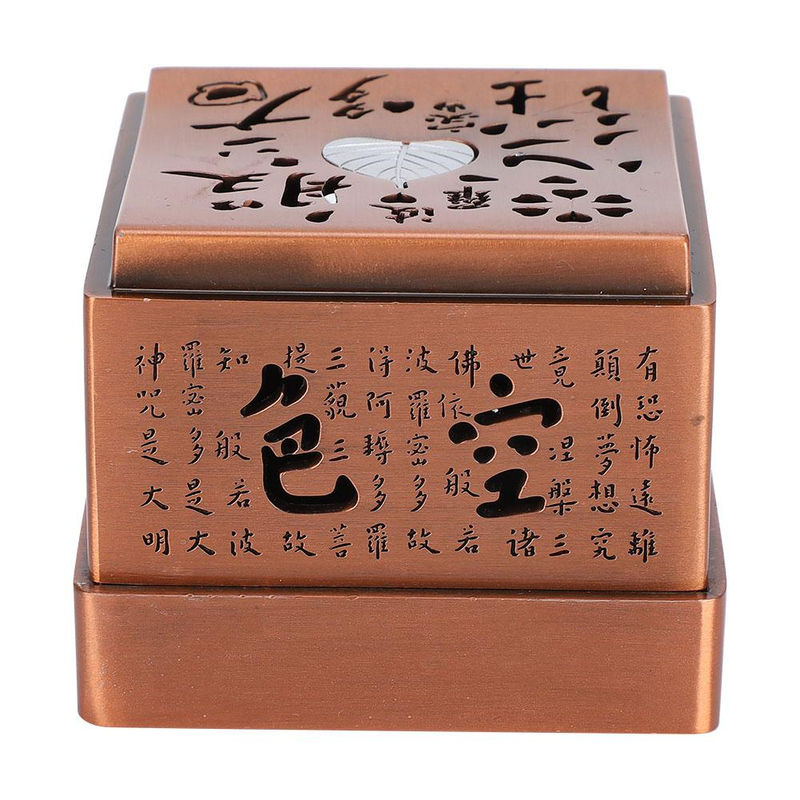 空色
有恐怖遠離
顛倒夢想究
竟涅槃三
世諸
佛依般若
波羅密多故
得阿耨多羅
三藐三菩
提故
知般若波
羅密多是大
神咒是大明